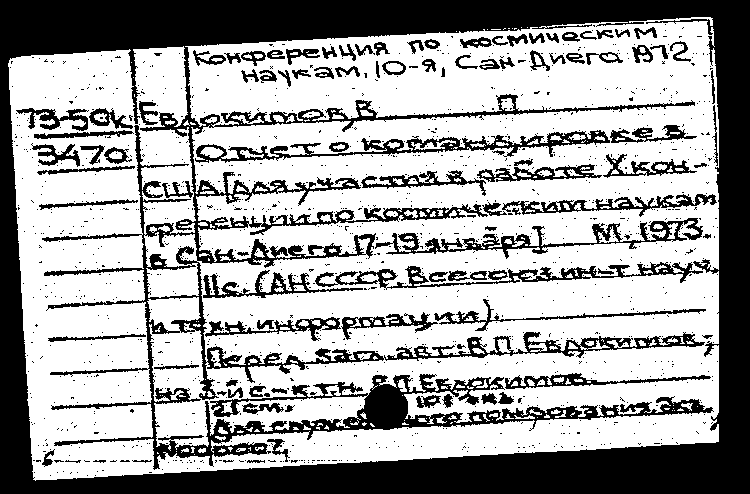 Конференция по космическим
наукам, 10-я, Сан-Диего 1972
73-50к Евдокимов, В П
3470 Отчет о командировке в
США [для участия в работе X кон-
ференции по космическим наукам
в Сан-Диего, 17-19 января] М., 1973.
11с. (АН СССР. Всесоюз. ин-т науч.
и техн. информации).
Перед загл. авт.: В.П. Евдокимов;
на 3-й с.-к.т.н. В.П. Евдокимов.
21см.
Для служебного пользования. Экз.
№000007.